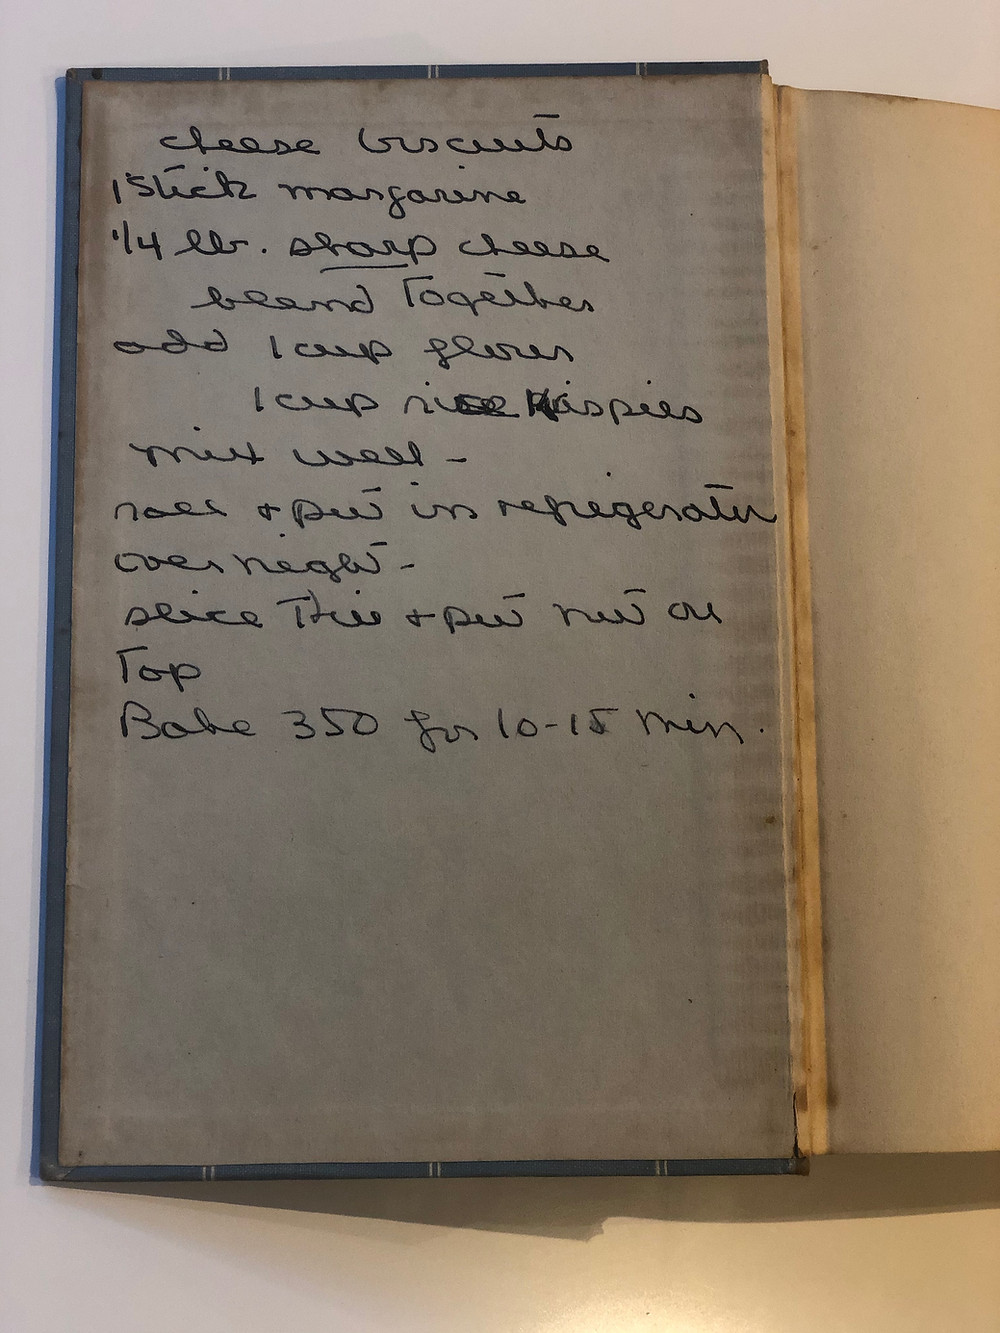 cheese biscuits
1 stick margarine
1/4 lb. sharp cheese
blend together
add 1 cup flour
1 cup rice Krispies
mix well -
roll + put in refrigerator
overnight -
slice thin + put nut on
Top
Bake 350 for 10-15 min.